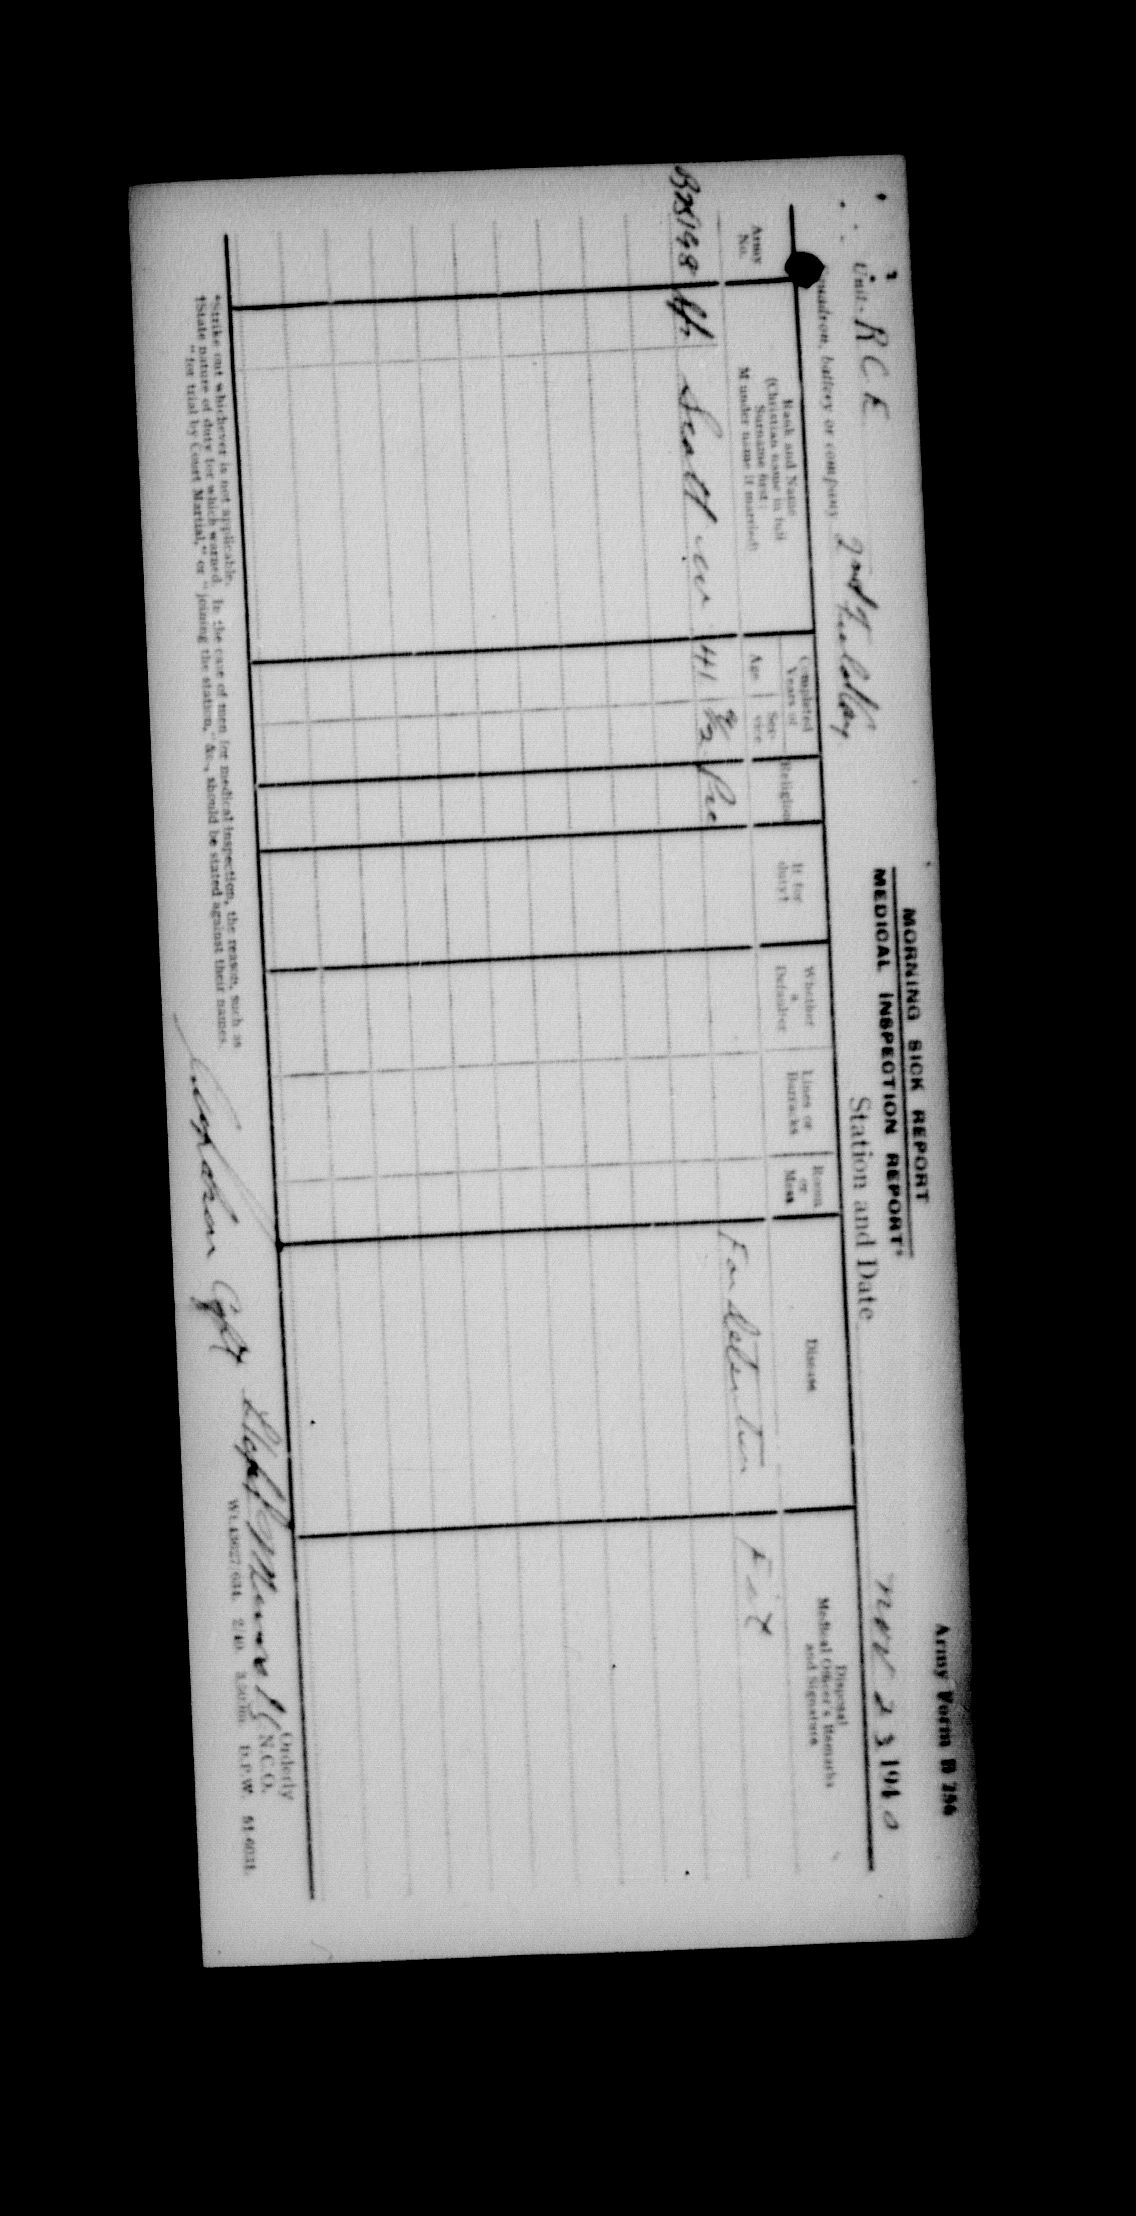 Army Form B 256
MORNING SICK REPORT
MEDICAL INSPECTION REPORT*
Unit. R C E
Station and Date Nov 23 1940
Squadron, battery or company 2nd Field Coy
Army No.
Rank and Name
(Christian name in full
Surname first;
M under name if married)
Completed Years of
Age
Service
Religion
If for duty†
Whether a Defaulter
Lines or Barracks
Room or Mess
Disease
Disposal
Medical Officer's Remarks
and Signature
B25198 Spr Scott W 41 Pre For detention Fit
*Strike out whichever is not applicable.
†State nature of duty for which warned. In the case of men for medical inspection, the reason, such as
"for trial by Court Martial," or "joining the station," &c., should be stated against their names.
Orderly
N.C.O.
Wt. 43627/631. 2/40. D.P.W. 51-6031.